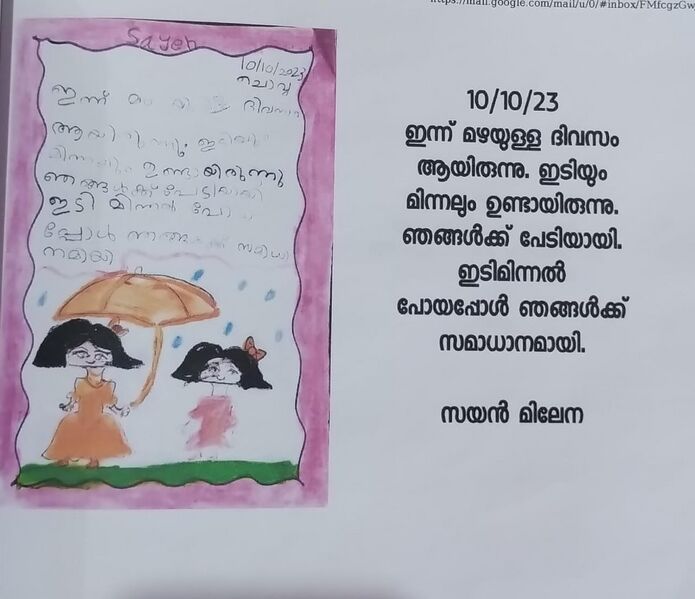 https://mail.google.com/mail/u/0/#inbox/FMfcgzGw
Sayen
10/10/2023
ചൊവ്വ
ഇന്ന് ദിവസം
ആയിരുന്നു. ഇടിയും
മിന്നലും ഉണ്ടായിരുന്നു
ഞങ്ങൾക്ക് പേടിയായി
ഇടി മിന്നൽ പോയ
പ്പോൾ ഞങ്ങൾക്ക് സമാധാ
നമായി
10/10/23
ഇന്ന് മഴയുള്ള ദിവസം
ആയിരുന്നു. ഇടിയും
മിന്നലും ഉണ്ടായിരുന്നു.
ഞങ്ങൾക്ക് പേടിയായി.
ഇടിമിന്നൽ
പോയപ്പോൾ ഞങ്ങൾക്ക്
സമാധാനമായി.
സയൻ മിലേന